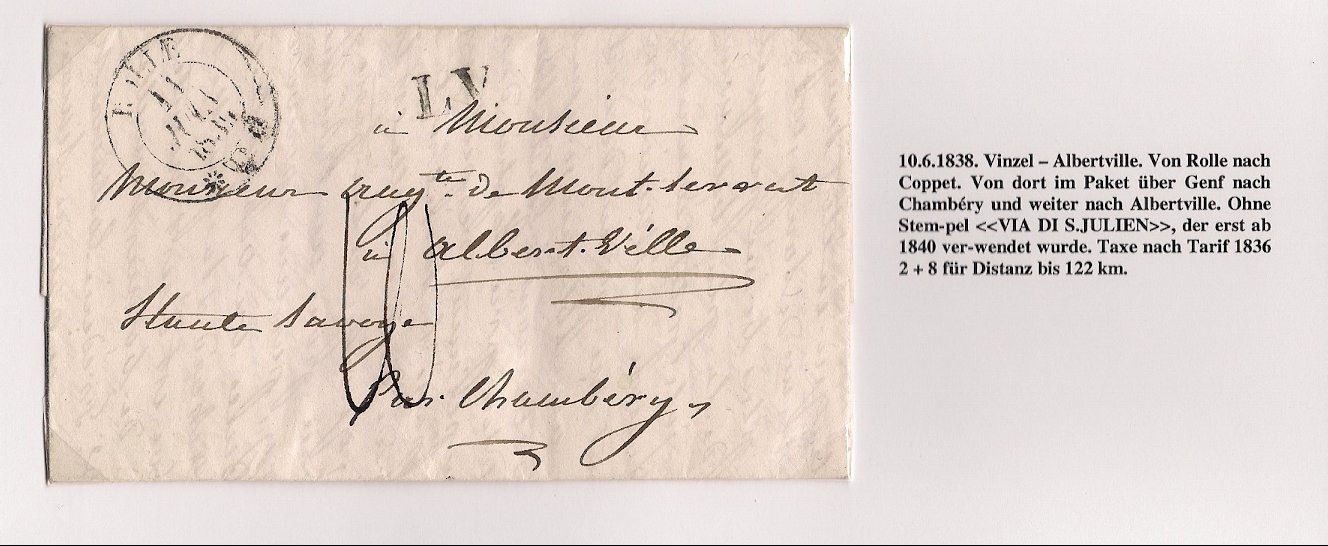 ROLLE
11
JUIN
L.V.
à Monsieur
Monsieur de Mont-Serrat
à Albert-Ville
Haute Savoye
10
Par Chambéry
10.6.1838. Vinzel – Albertville. Von Rolle nach
Coppet. Von dort im Paket über Genf nach
Chambéry und weiter nach Albertville. Ohne
Stem-pel <<VIA DI S.JULIEN>>, der erst ab
1840 ver-wendet wurde. Taxe nach Tarif 1836
2 + 8 für Distanz bis 122 km.